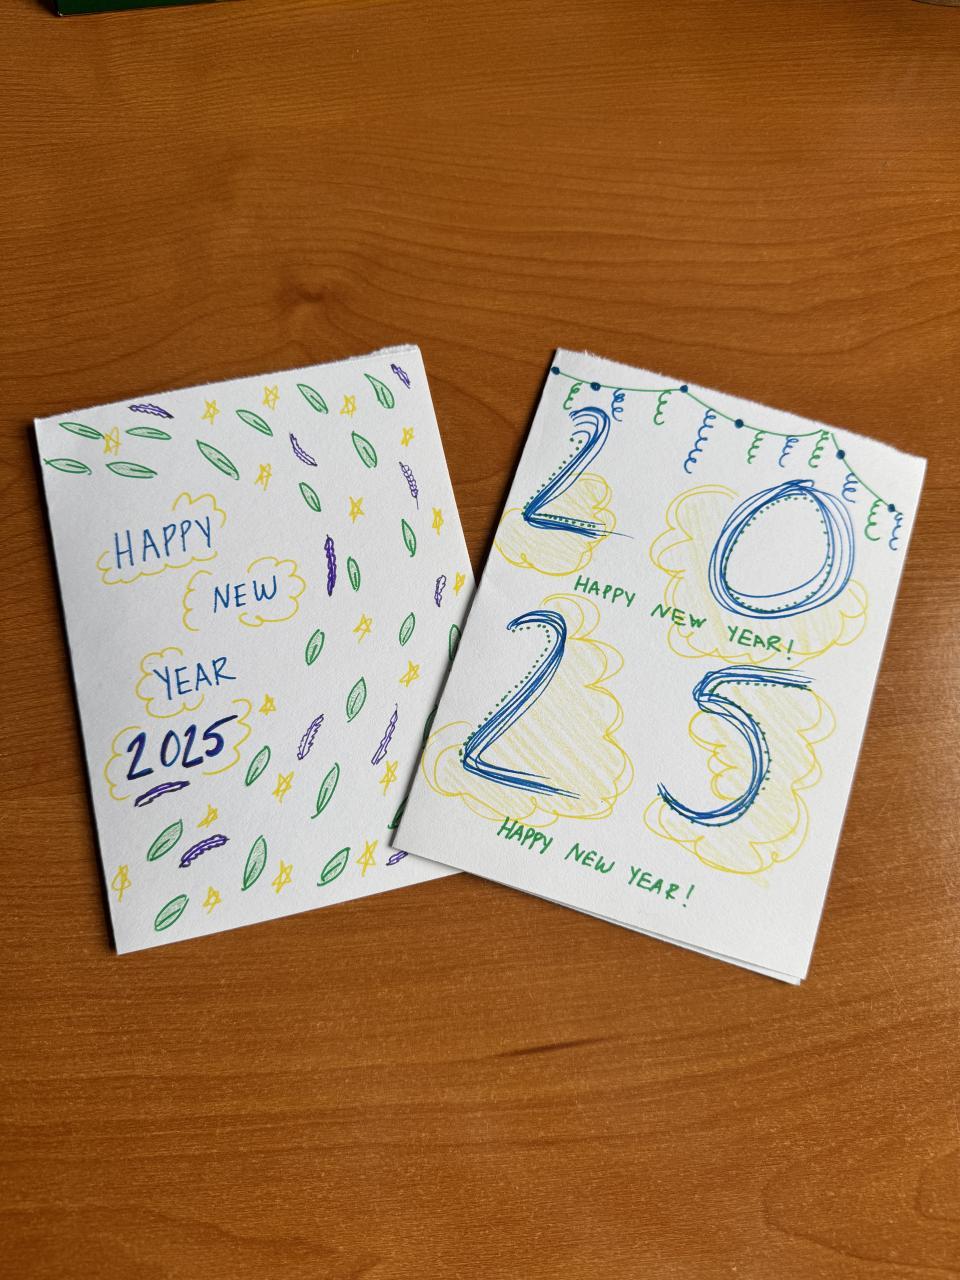 HAPPY
NEW
YEAR
2025
20
HAPPY NEW YEAR!
25
HAPPY NEW YEAR!